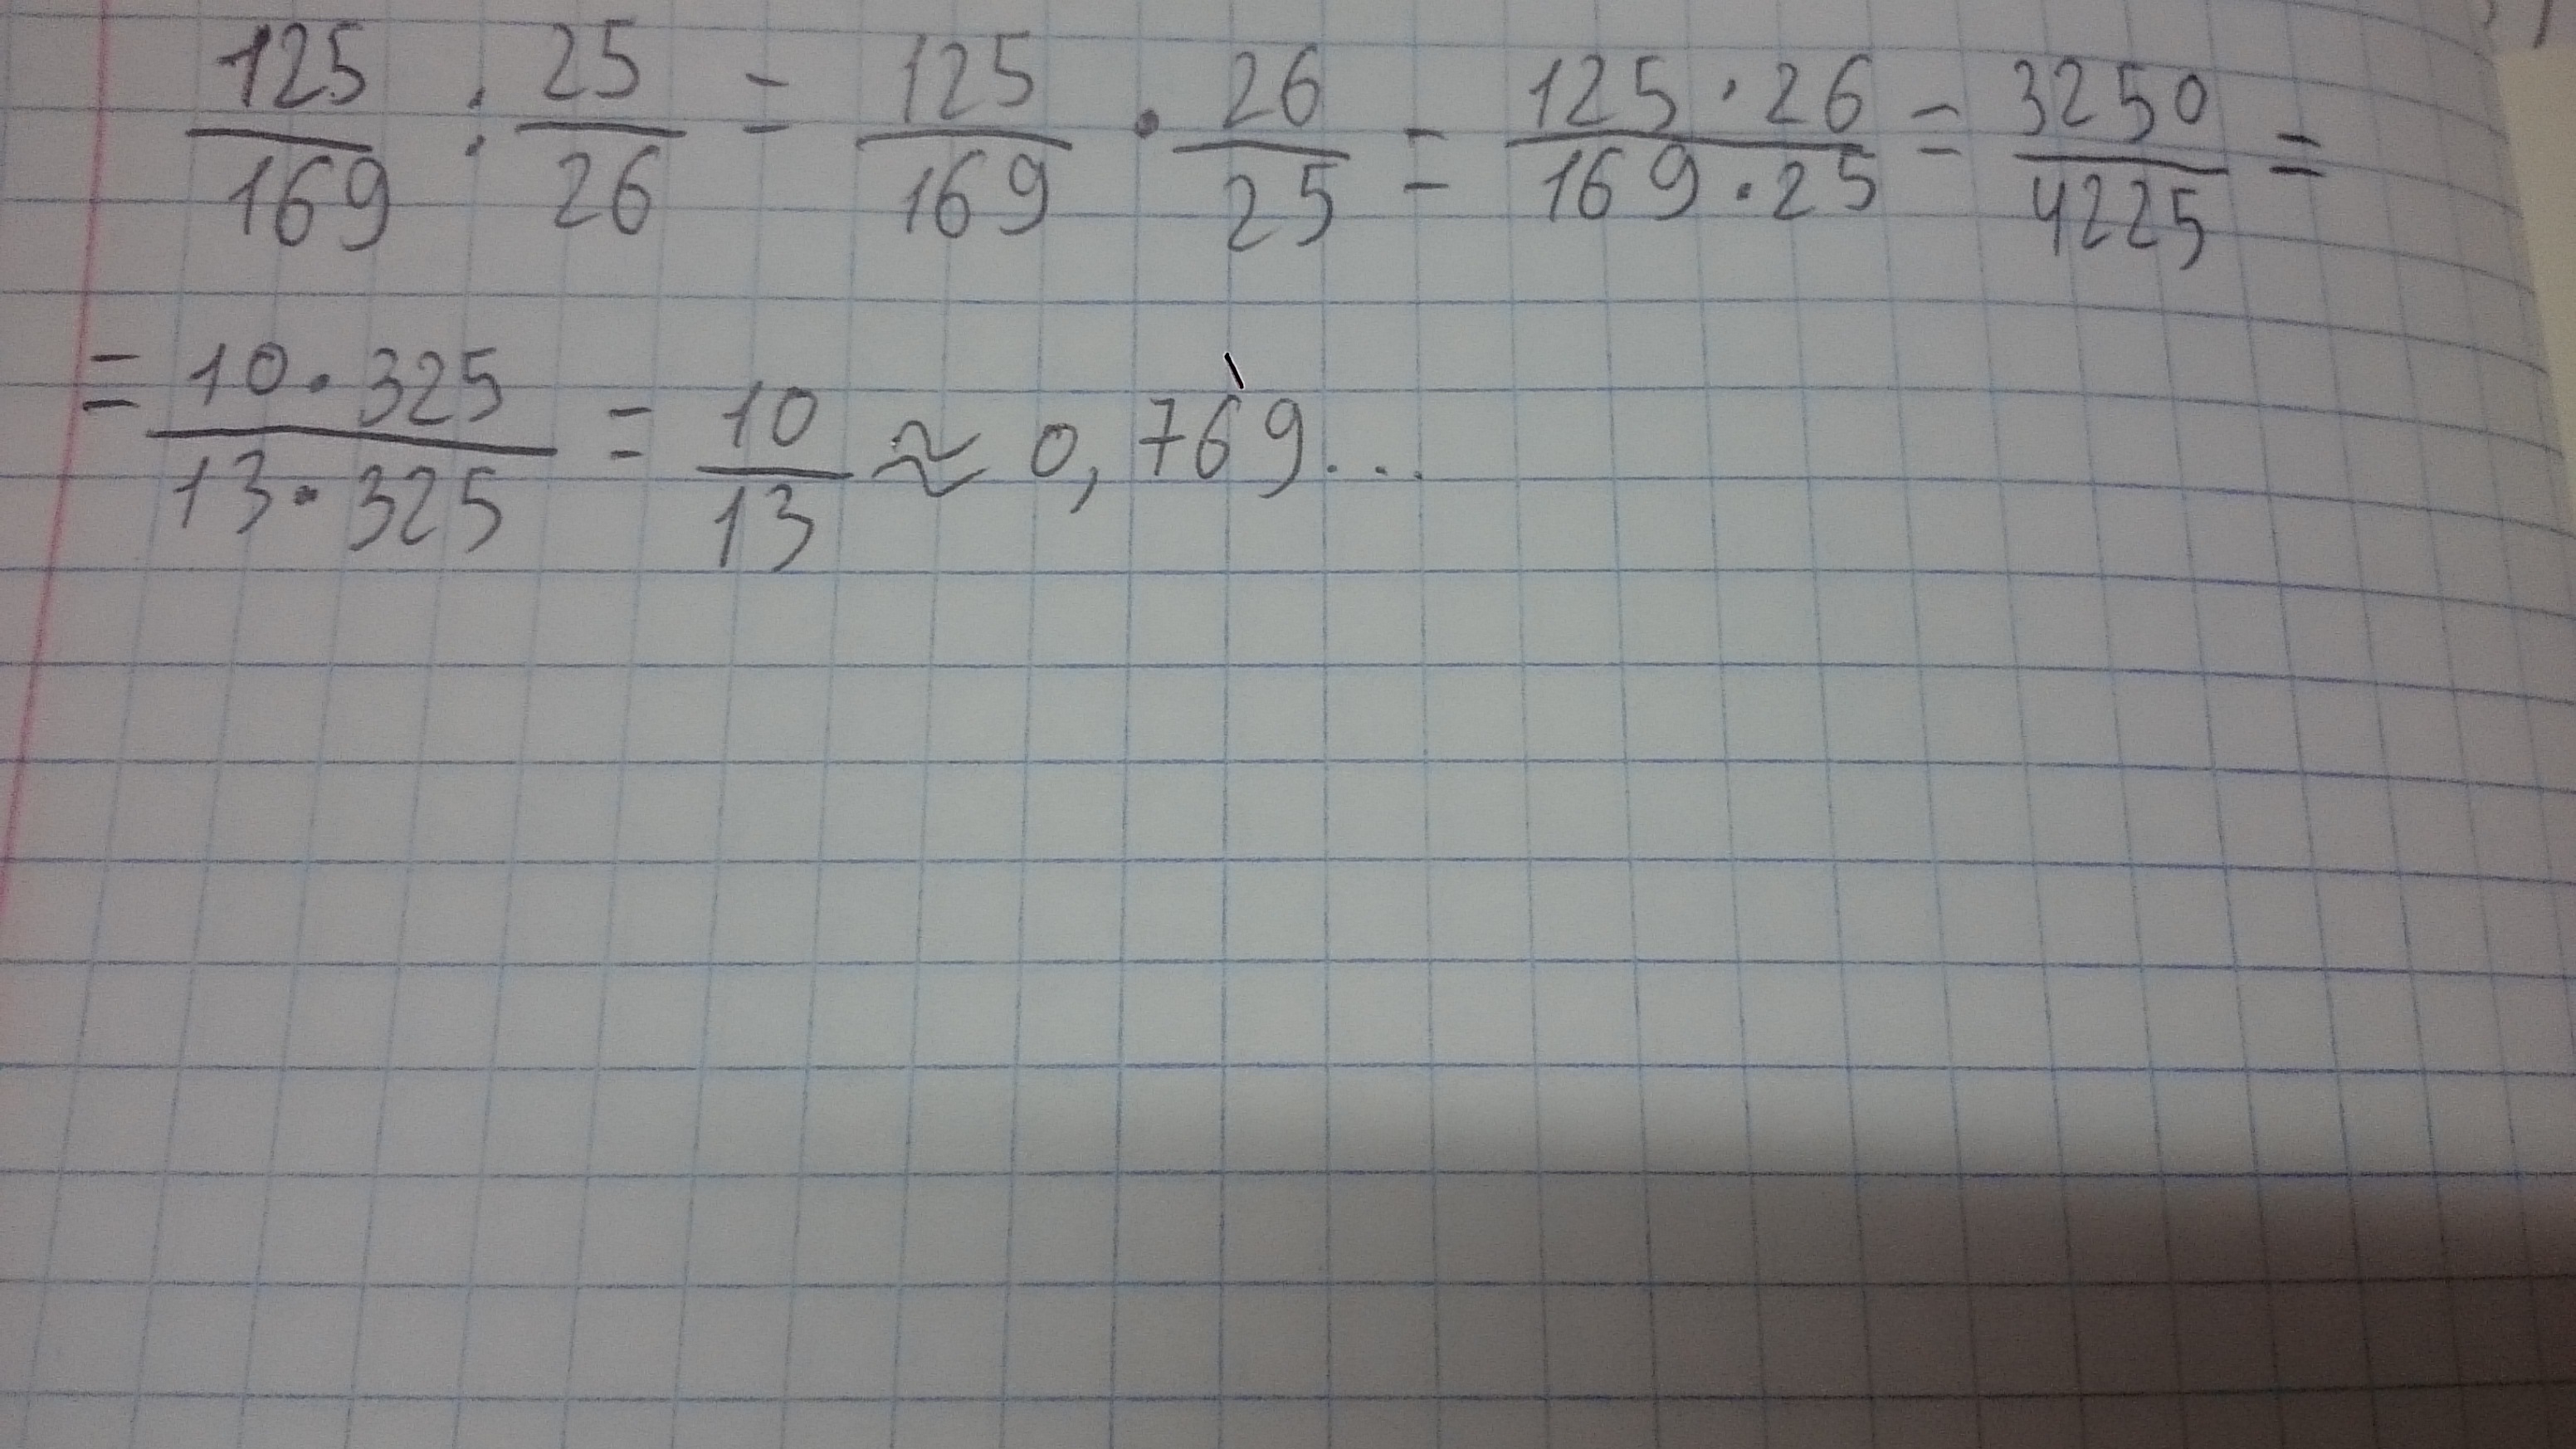 125/169 : 25/26 = 125/169 · 26/25 = 125·26/169·25 = 3250/4225 =
= 10·325/13·325 = 10/13 ≈ 0,769...